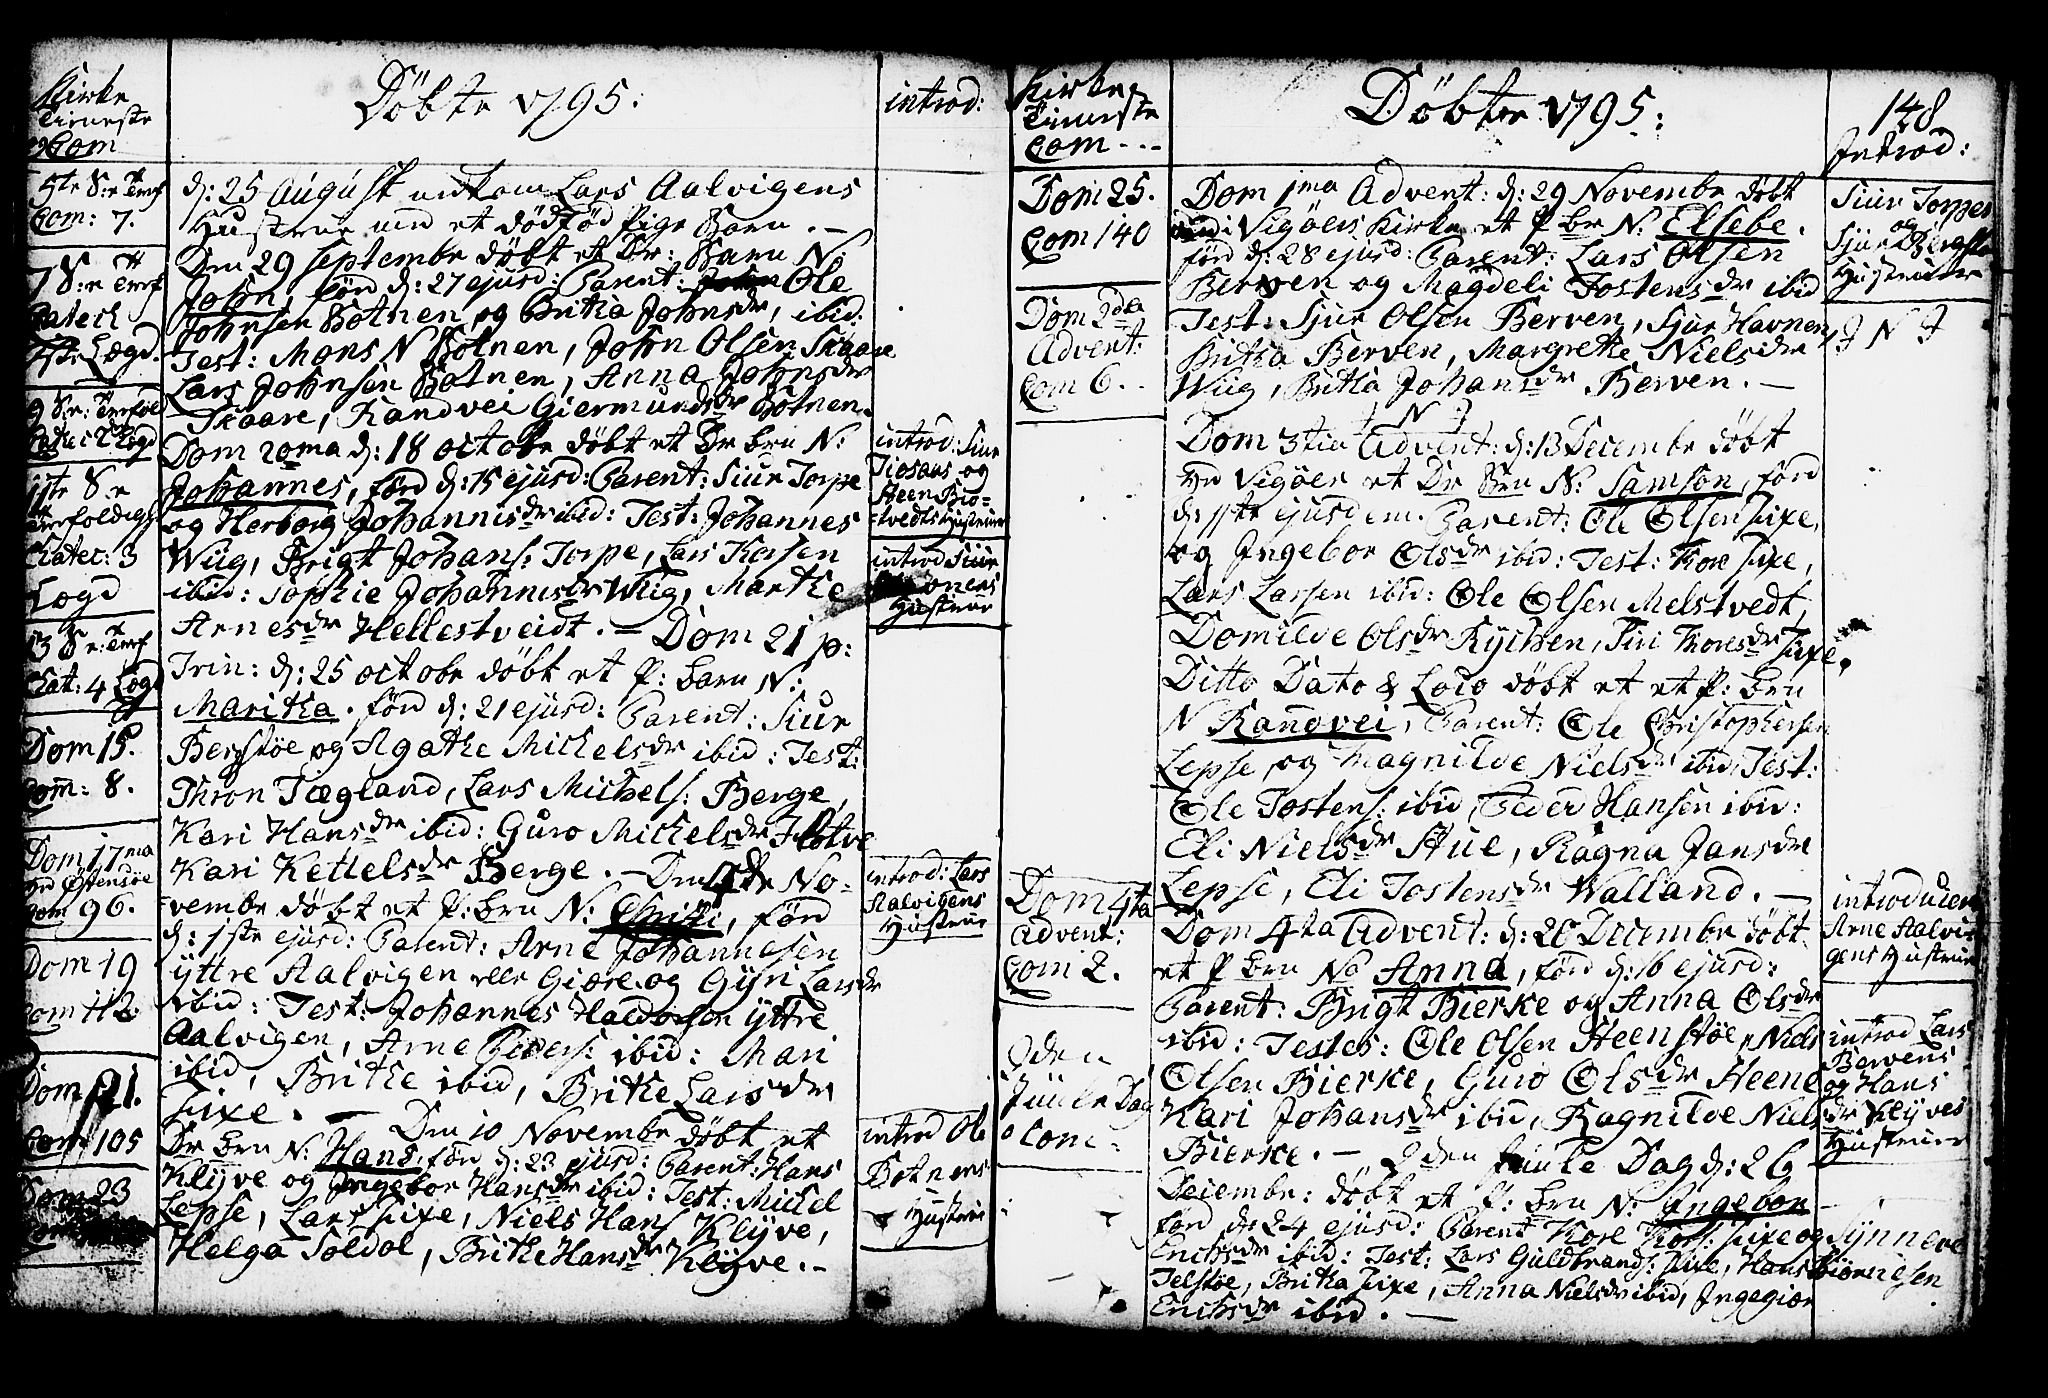 Kirke
Tieneste
Com
5te S:e Tref
Com: 7.
7 S:e Tref
Catech
4ste Lægd.
9 S:e: Trefol
Catec Lægd
11te S:e
Trefoldigh
Catec: 3
Lægd
13 S:e: Tref
Cat: 4 Lægd
Dom 15.
Com: 8.
Dom 17ma
Ved Østensøe
Com 96.
Dom 19
Com 112.
Dom 21.
Com 105
Dom 23
Döbte 1795:
d: 25 August utkom Lars Aalvigens
Hustrue med et dödfød Pige Barn. –
Den 29 Septembr döbt et Dr: Barn N:
John, förd d: 27 ejusd: Parent: Ole
Johnsen Botnen og Britha Johnsdr, ibid:
Test: Mons N Botnen, John Olsen Skaare
Lars Johnsen Botnen, Anna Johnsdr
Skaare, Randvei Giermundsdr Botnen.
Dom 20ma d: 18 octobr döbt et Dr brn N:
Johannes, förd d: 15 ejusd: Parent: Siur Torpe
og Herborg Johannisdr ibid: Test: Johannes
Wiig, Brigt Johans: Torpe, Lars Korsen
ibid: Sophie Johannisdr Wiig, Marthe
Arnesdr Hellestveidt. – Dom 21 p:
Trin: d: 25 octobr döbt et P: barn N:
Maritha. förd d: 21 ejusd: Parent: Siur
Bergstøe og Agathe Michelsdr ibid: Test:
Thron Tægland, Lars Michels: Berge,
Kari Hansdr ibid: Guro Michelsdr
Kari Kettelsdr Berge. – Den No-
vembr döbt et P: brn N: förd
d: 1ste ejusd: Parent: Arne Johannesen
yttre Aalvigen elle Giøre og Gyri Larsdr
ibid: Test: Johannes Haldorsen yttre
Aalvigen, Arne Peders: ibid: Mari
ibid, Brithe ibid, Brithe Larsdr
Fixe. – Den 10 Novembr döbt et
Dr brn N: Hans, förd d: 23 ejusd: Parent: Hans
Klyve og Ingebor Hansdr ibid: Test: Michel
Lepse, Lars Fixe, Niels Hans Klyve,
Helga Soldal, Brithe Hansdr Klyve. –
introd:
introd: Siur
Tiosaas og
Steen Bio-
tvedts Hustruer
introd Siur
Hustrue
introd: Lars
Aalvigens
Hustrue
introd Ole
Botnens
Hustrue
Kirke
Tieneste
Com . . .
Dom 25.
Com 140
Dom 2da
Advent:
Com 6. .
Dom 4ta
Advent:
Com 2.
2den
Juule Dag
0 Com:
Döbte 1795:
Dom 1ma Advent: d: 29 Novembr döbt
i Vigöers Kirke et P br N: Elsebe.
förd d: 28 ejusd: Parent: Lars Olsen
Berven og Magdeli Tostensdr ibid
Test: Sjur Olsen Berven, Sjur Havnen,
Britha Berven, Margrethe Nielsdr
Wiig, Britha Johansdr Berven. –
J N J
Dom 3tia Advent: d: 13 Decembr döbt
ved Vigöer et Dr Brn N: Samson, förd
d: 11te ejusdem. Parent: Ole Olsen Fixe,
og Ingebor Olsdr ibid: Test: Thore Fixe,
Lars Larsen ibid: Ole Olsen Melstvedt,
Domilde Olsdr Rykhen, Siri Thoresdr Fixe.
Ditto Dato & Loco döbt et et P: brn
N Randvei, Parent: Ole Christophersen
Lepse og Magnilde Nielsdr ibid, Test:
Ole Tostens: ibid, Peder Hansen ibid:
Eli Nielsdr Stue, Ragna Jansdr
Lepse, Eli Tostensdr Walland. –
Dom 4ta Advent: d: 20 Decembr döbt
et P brn No Anna, förd d: 16 ejusd:
Parent: Brigt Bierke og Anna Olsdr
ibid: Testes: Ole Olsen Steenstøe, Niels
Olsen Bierke, Guro Olsdr Steene
Kari Johansdr ibid, Ragnilde Niels
Bierke. – 2den Juule Dag d: 26
Decembr: döbt et P: brn N: Ingebor
förd d: 24 ejusd: Parent Kore Kors: Fixe og Synneve
Erichsdr ibid: Test: Lars Guldbrands: Fixe, Hans Biörnesen
Telstøe, Britha Fixe, Anna Nielsdr ibid, Ingegiær
Erichsdr ibid. –
148
Introd:
Siur Torpes
og
Sjur Bergstø
Hustruer
J N J
introducer
Arne Aalvi-
gens Hustrue
introd Lars
Bervens
og Hans
Klyves
Hustruer